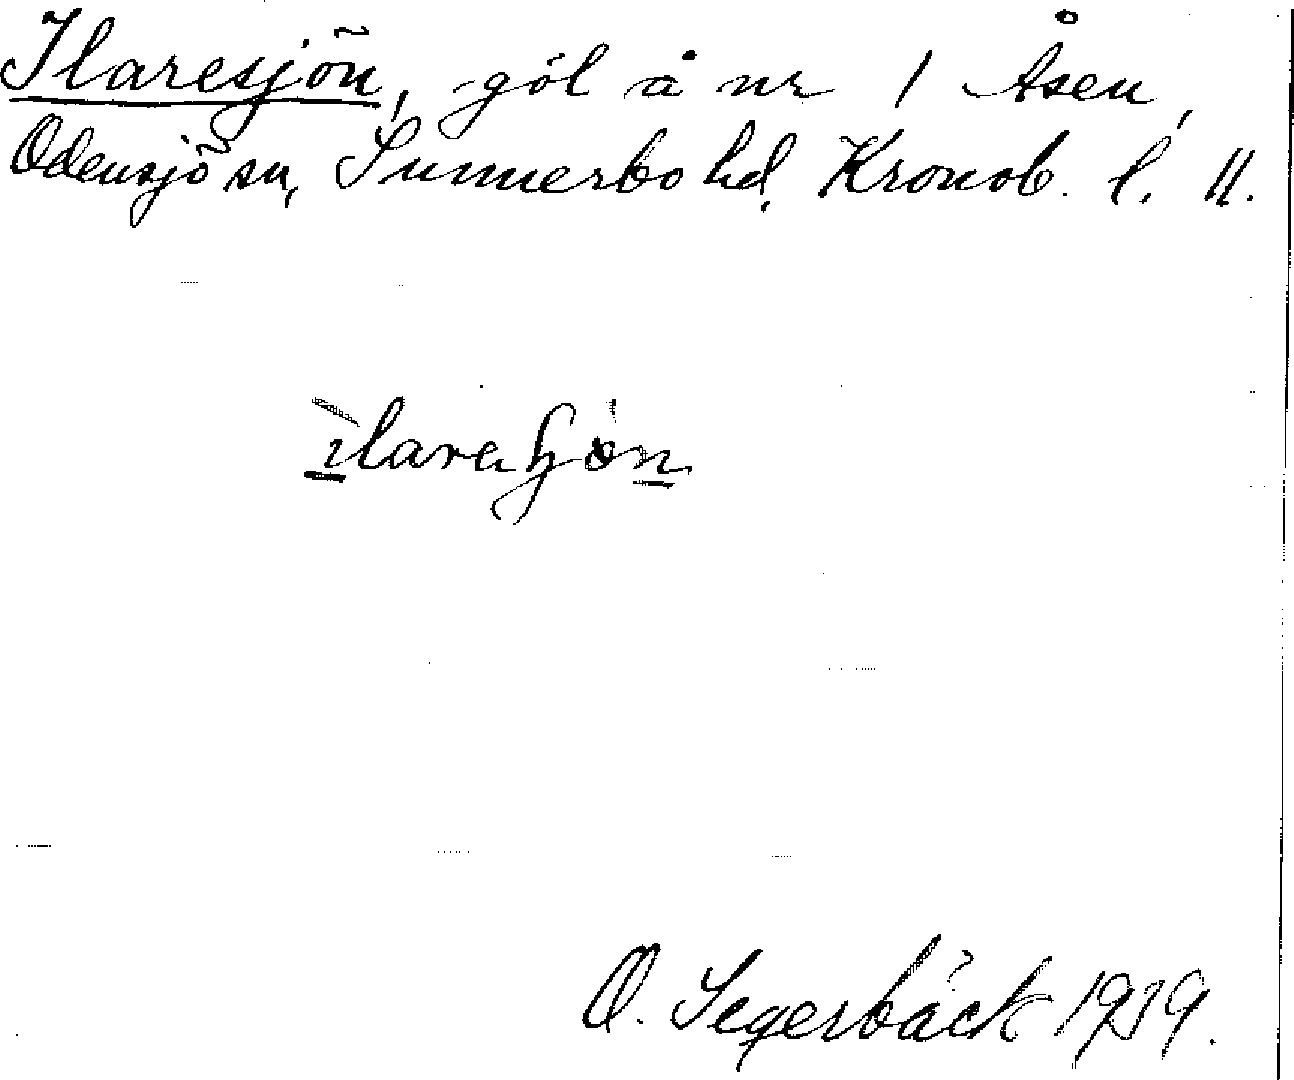 Ilaresjön, göl å nr 1 Åsen,
Odensjö sn, Sunnerbo hd, Kronob. l. II.
O. Segerbäck 1939.